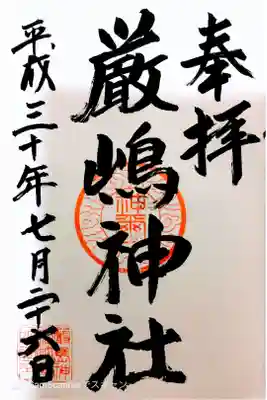 奉拝
厳嶋神社
平成三十年七月二十六日